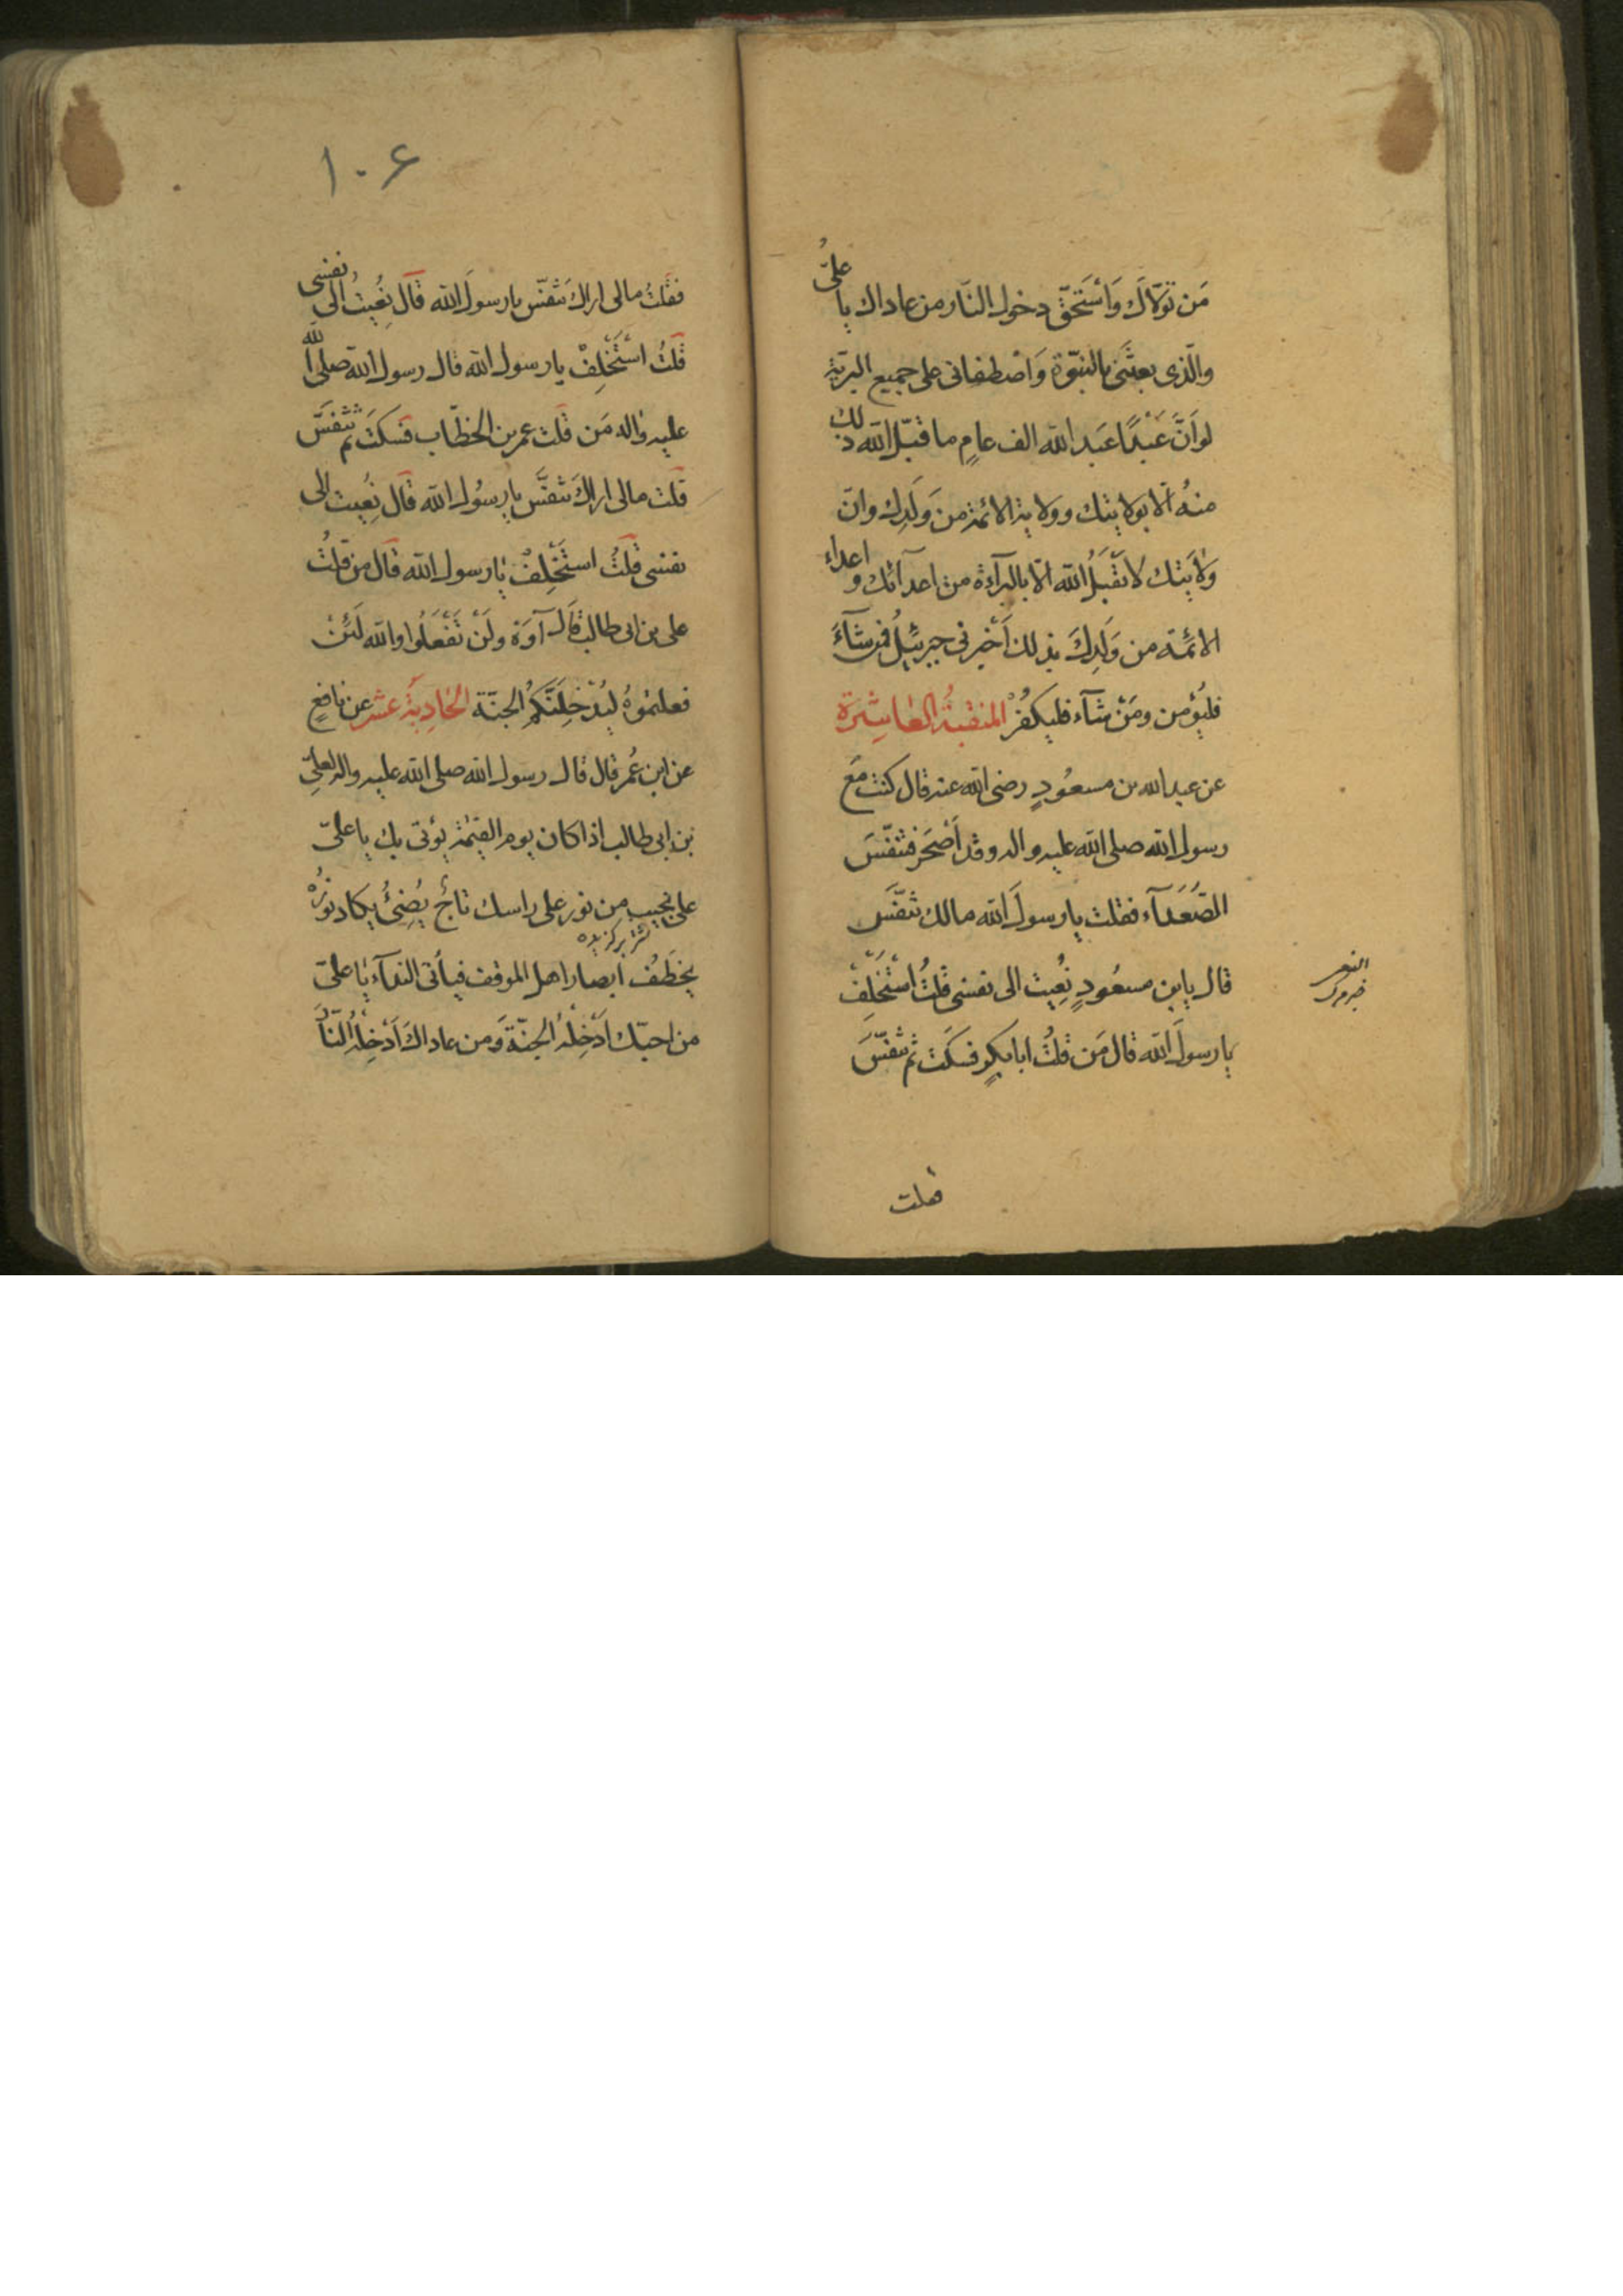 مَن تَوَلّاكَ وَاسْتَحَقّ دخول النّار من عاداك يا علىُّ
والّذى بعثَنى بالنبّوة وَاصْطفانى على جميع البريّة
لو اَنَّ عَبْدًا عَبَد الله الف عامٍ ما قبّل الله ذلك
منهُ اّلا بولايتك وولاية الائمّة من وَلَدِك وانّ
وَلٰايَتك لا تقْبَلُ الله الّا بالبرآءة من اعدآئك و اعداء
الائمَّة من وَلَدِكَ بذلك اَخْبرنى جبرئيلُ فمن شآءَ
فليُؤمن ومَنْ شآء فليكفُرْ المنقبةُ العٰاشِرَة
عن عبد الله بن مسعُودٍ رضى الله عنه قال كنت مَعَ
رسول الله صلى الله عليه و اله وقد اَصْحَر فتنفّسَ
الصُّعَدَآء فقلت يا رسولَ الله مالك تتنفّس
قال يابن مسعُودٍ نُعِيَت الى نفسى قلتُ اسْتَخْلِفْ
يا رسولَ الله قال مَن قلتُ ابا بكرٍ فسكَت ثم تنفّسَ
فقلت
۱۰۶
فقلتُ مالى اراكَ تتنفّس يا رسولَ الله قال نُعِيَتُ الى نفسى
قلتُ اسْتَخْلِفْ يا رسول الله قال رسول الله صلى الله
عليه واٰله مَن قلت عمر بن الخطّاب فسكَتَ ثم تنفسَّ
قلت مالى اراكَ تتنفَّس يا رسُول الله قال نُعِيَت الى
نفسى قلتُ استَخْلِفْ يٰا رسول الله قال من قلتُ
على بن ابى طالب قال آوَهْ ولَنْ تَفْعَلُوا والله لَئِنْ
فعلتموُهُ ليُدْخِلَنَّكُم الجنّة الحٰادِيَة عشر عن نٰافعٍ
عن ابن عُمر قال قال رسول الله صلى الله عليه واله لعلىِّ
بن ابى طالب اذا كان يوم القيٰمة يؤتى بك يا علىّ
على نجيبٍ من نور على راسك تاجٌ يُضِئُ يكاد نورُهُ
شتر برگزيده
يخطَفُ ابصار اهل الموقف فيأتى الندآء يٰا علىّ
من احبّك اَدْخِلْهُ الجنّةَ وَمن عاداكَ اَدْخِلْهُ النّارَ